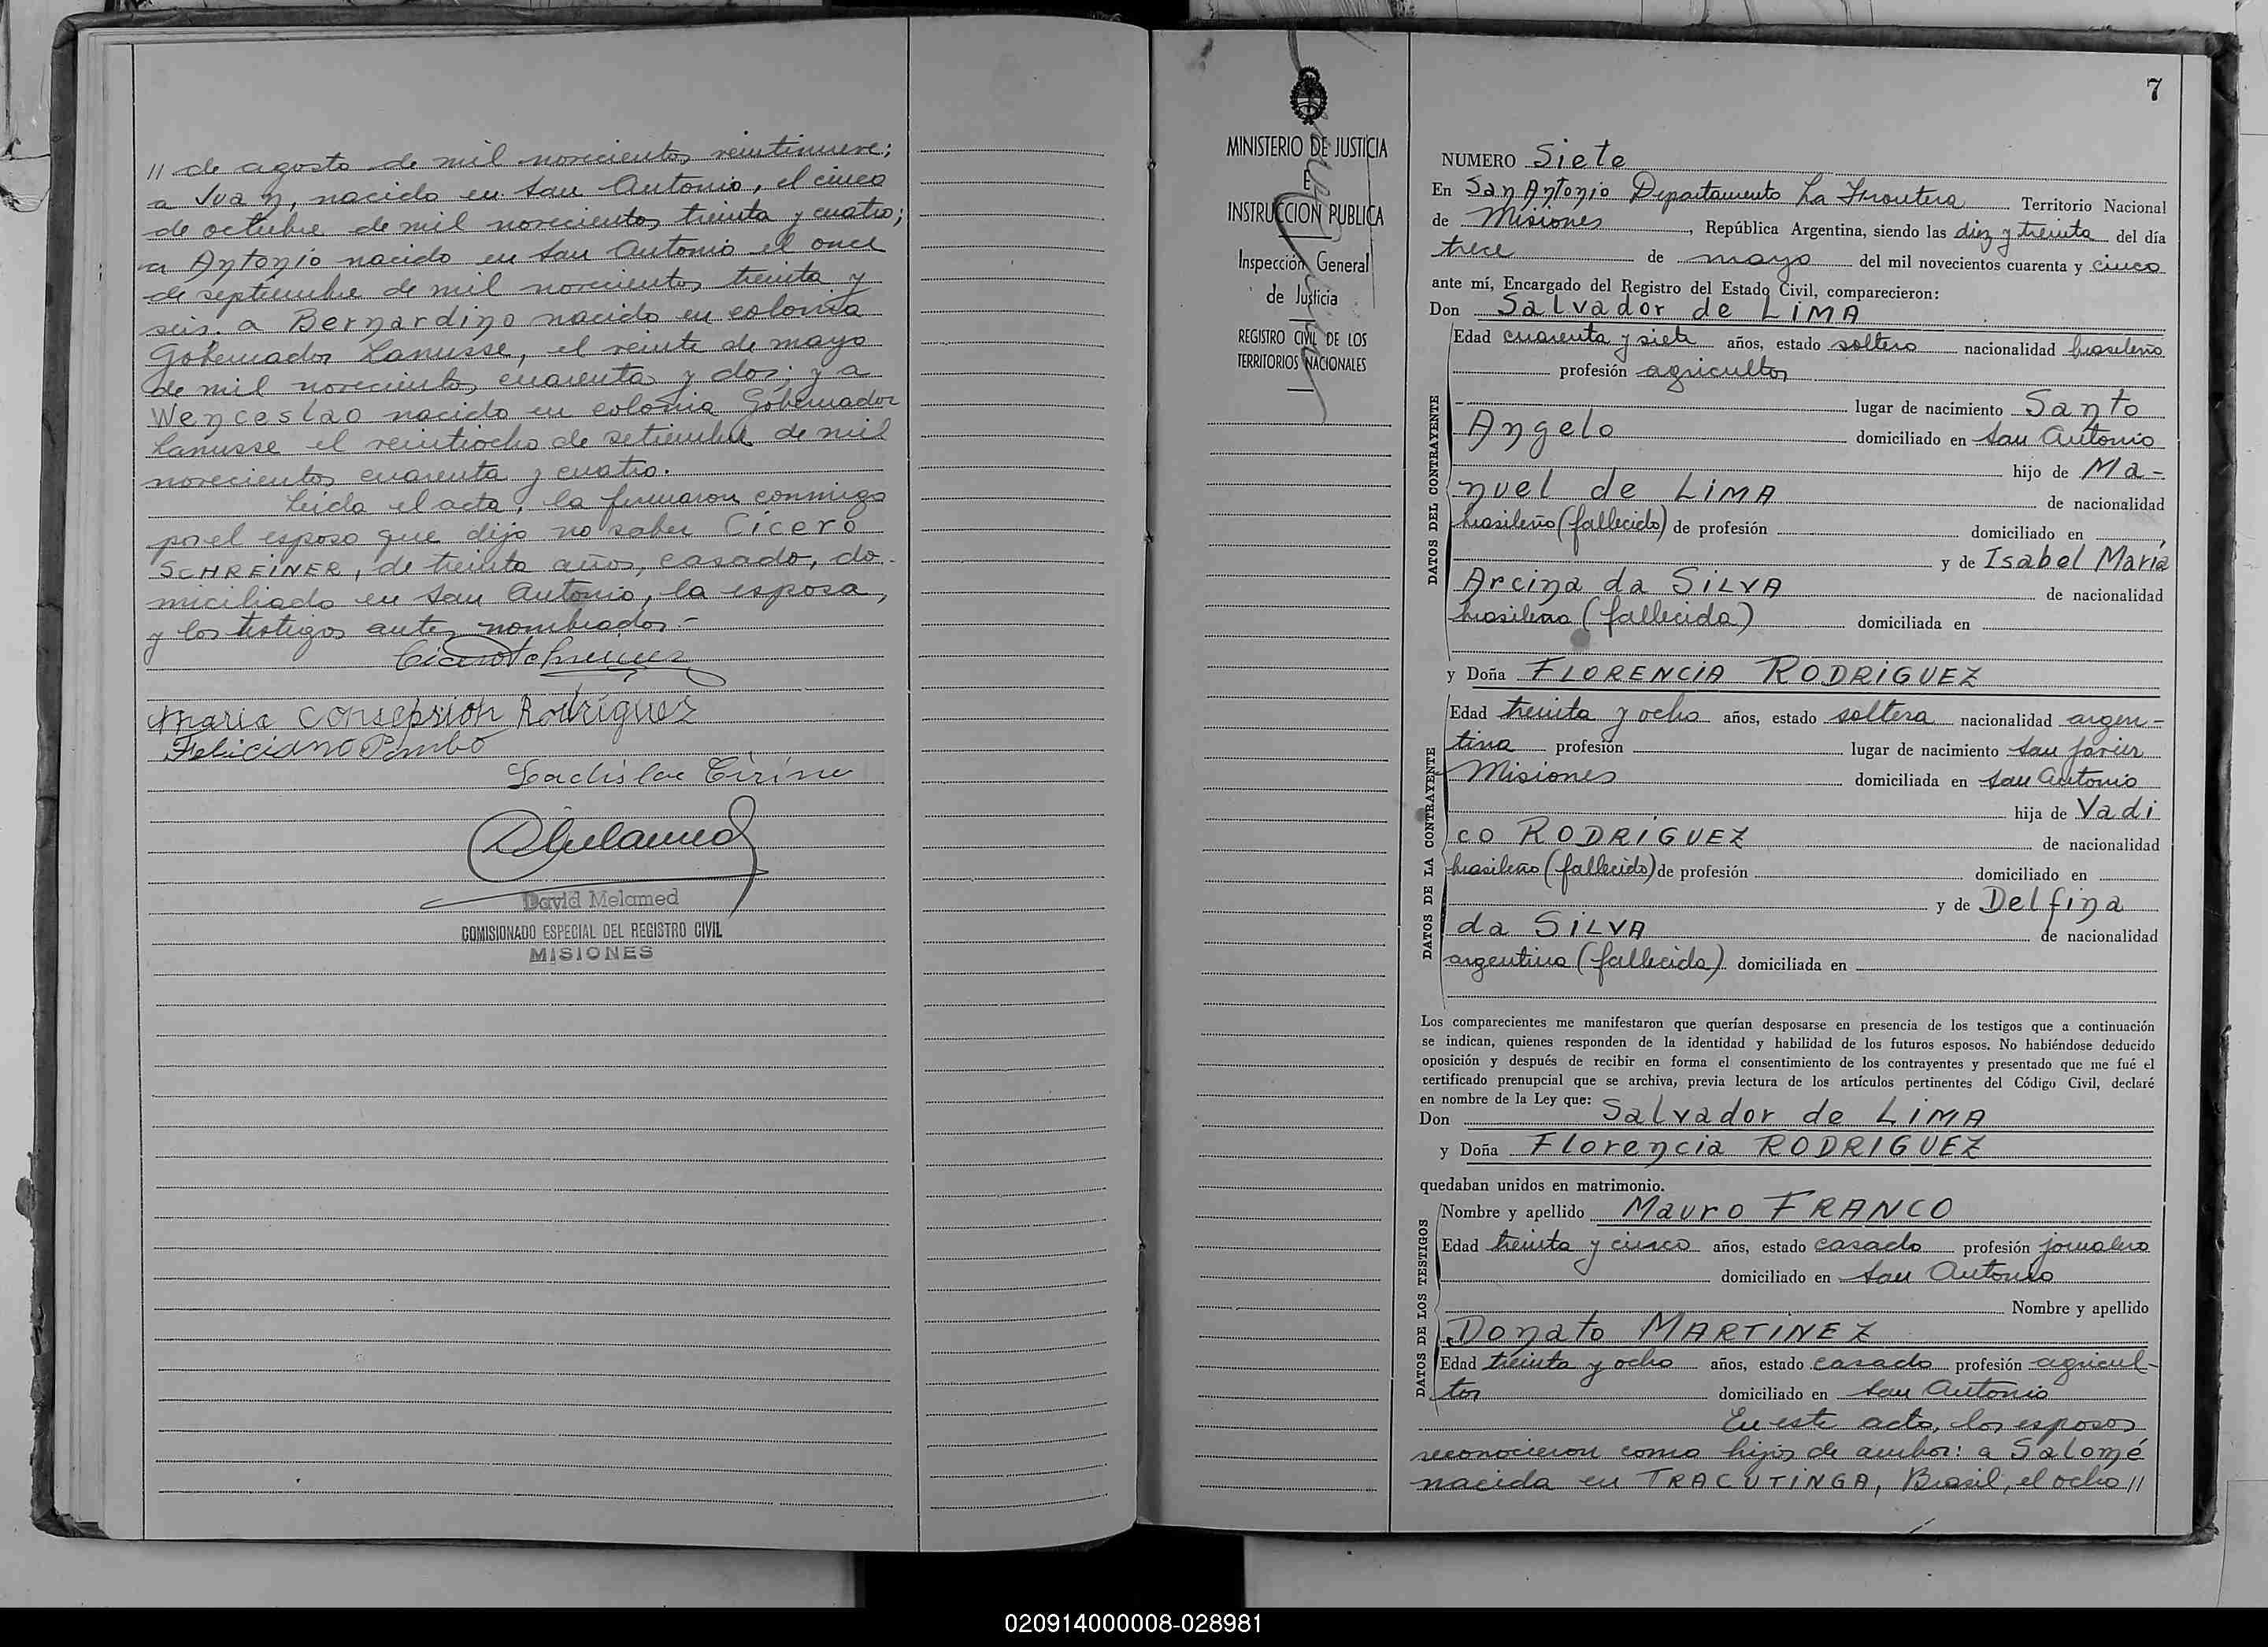 // de agosto de mil novecientos veintinueve;
a Juan, nacido en San Antonio, el cinco
de octubre de mil novecientos treinta y cuatro;
a Antonio nacido en San Antonio el once
de septiembre de mil novecientos treinta y
seis. a Bernardino nacido en colonia
Gobernador Lanusse, el veinte de mayo
de mil novecientos cuarenta y dos; y a
Wenceslao nacido en colonia Gobernador
Lanusse el veintiocho de setiembre de mil
novecientos cuarenta y cuatro.
Leida el acta, la firmaron conmigo
por el esposo que dijo no saber Cicero
SCHREINER, de treinta años, casado, do-
miciliado en San Antonio, la esposa,
y los testigos antes nombrados.-
Cicero Schreiner
Maria Consepsion Rodriguez
Feliciano Pombo
Ladislao
David Melamed
COMISIONADO ESPECIAL DEL REGISTRO CIVIL
MISIONES
MINISTERIO DE JUSTICIA
E
INSTRUCCION PUBLICA
Inspección General
de Justicia
REGISTRO CIVIL DE LOS
TERRITORIOS NACIONALES
7
NUMERO Siete
En San Antonio Departamento La Frontera Territorio Nacional
de Misiones, República Argentina, siendo las diez y treinta del día
trece de mayo del mil novecientos cuarenta y cinco
ante mí, Encargado del Registro del Estado Civil, comparecieron:
Don Salvador de LIMA
DATOS DEL CONTRAYENTE
Edad cuarenta y siete años, estado soltero nacionalidad brasileño
profesión agricultor
lugar de nacimiento Santo
Angelo domiciliado en San Antonio
hijo de Ma-
nuel de LIMA de nacionalidad
brasileño (fallecido) de profesión domiciliado en
y de Isabel Maria
Arcina da SILVA de nacionalidad
brasilera (fallecida) domiciliada en
y Doña FLORENCIA RODRIGUEZ
DATOS DE LA CONTRAYENTE
Edad treinta y ocho años, estado soltera nacionalidad argen-
tina profesión lugar de nacimiento San Javier
Misiones domiciliada en San Antonio
hija de Vadi
co RODRIGUEZ de nacionalidad
brasileño (fallecido) de profesión domiciliado en
y de Delfina
da SILVA de nacionalidad
argentina (fallecida) domiciliada en
Los comparecientes me manifestaron que querían desposarse en presencia de los testigos que a continuación
se indican, quienes responden de la identidad y habilidad de los futuros esposos. No habiéndose deducido
oposición y después de recibir en forma el consentimiento de los contrayentes y presentado que me fué el
certificado prenupcial que se archiva, previa lectura de los artículos pertinentes del Código Civil, declaré
en nombre de la Ley que:
Don Salvador de LIMA
y Doña Florencia RODRIGUEZ
quedaban unidos en matrimonio.
DATOS DE LOS TESTIGOS
Nombre y apellido Mauro FRANCO
Edad treinta y cinco años, estado casado profesión jornalero
domiciliado en San Antonio
Nombre y apellido
Donato MARTINEZ
Edad treinta y ocho años, estado casado profesión agricul-
tor domiciliado en San Antonio
En este acto, los esposos
reconocieron como hijos de ambos: a Salomé
nacida en TRACUTINGA, Brasil, el ocho //
020914000008-028981